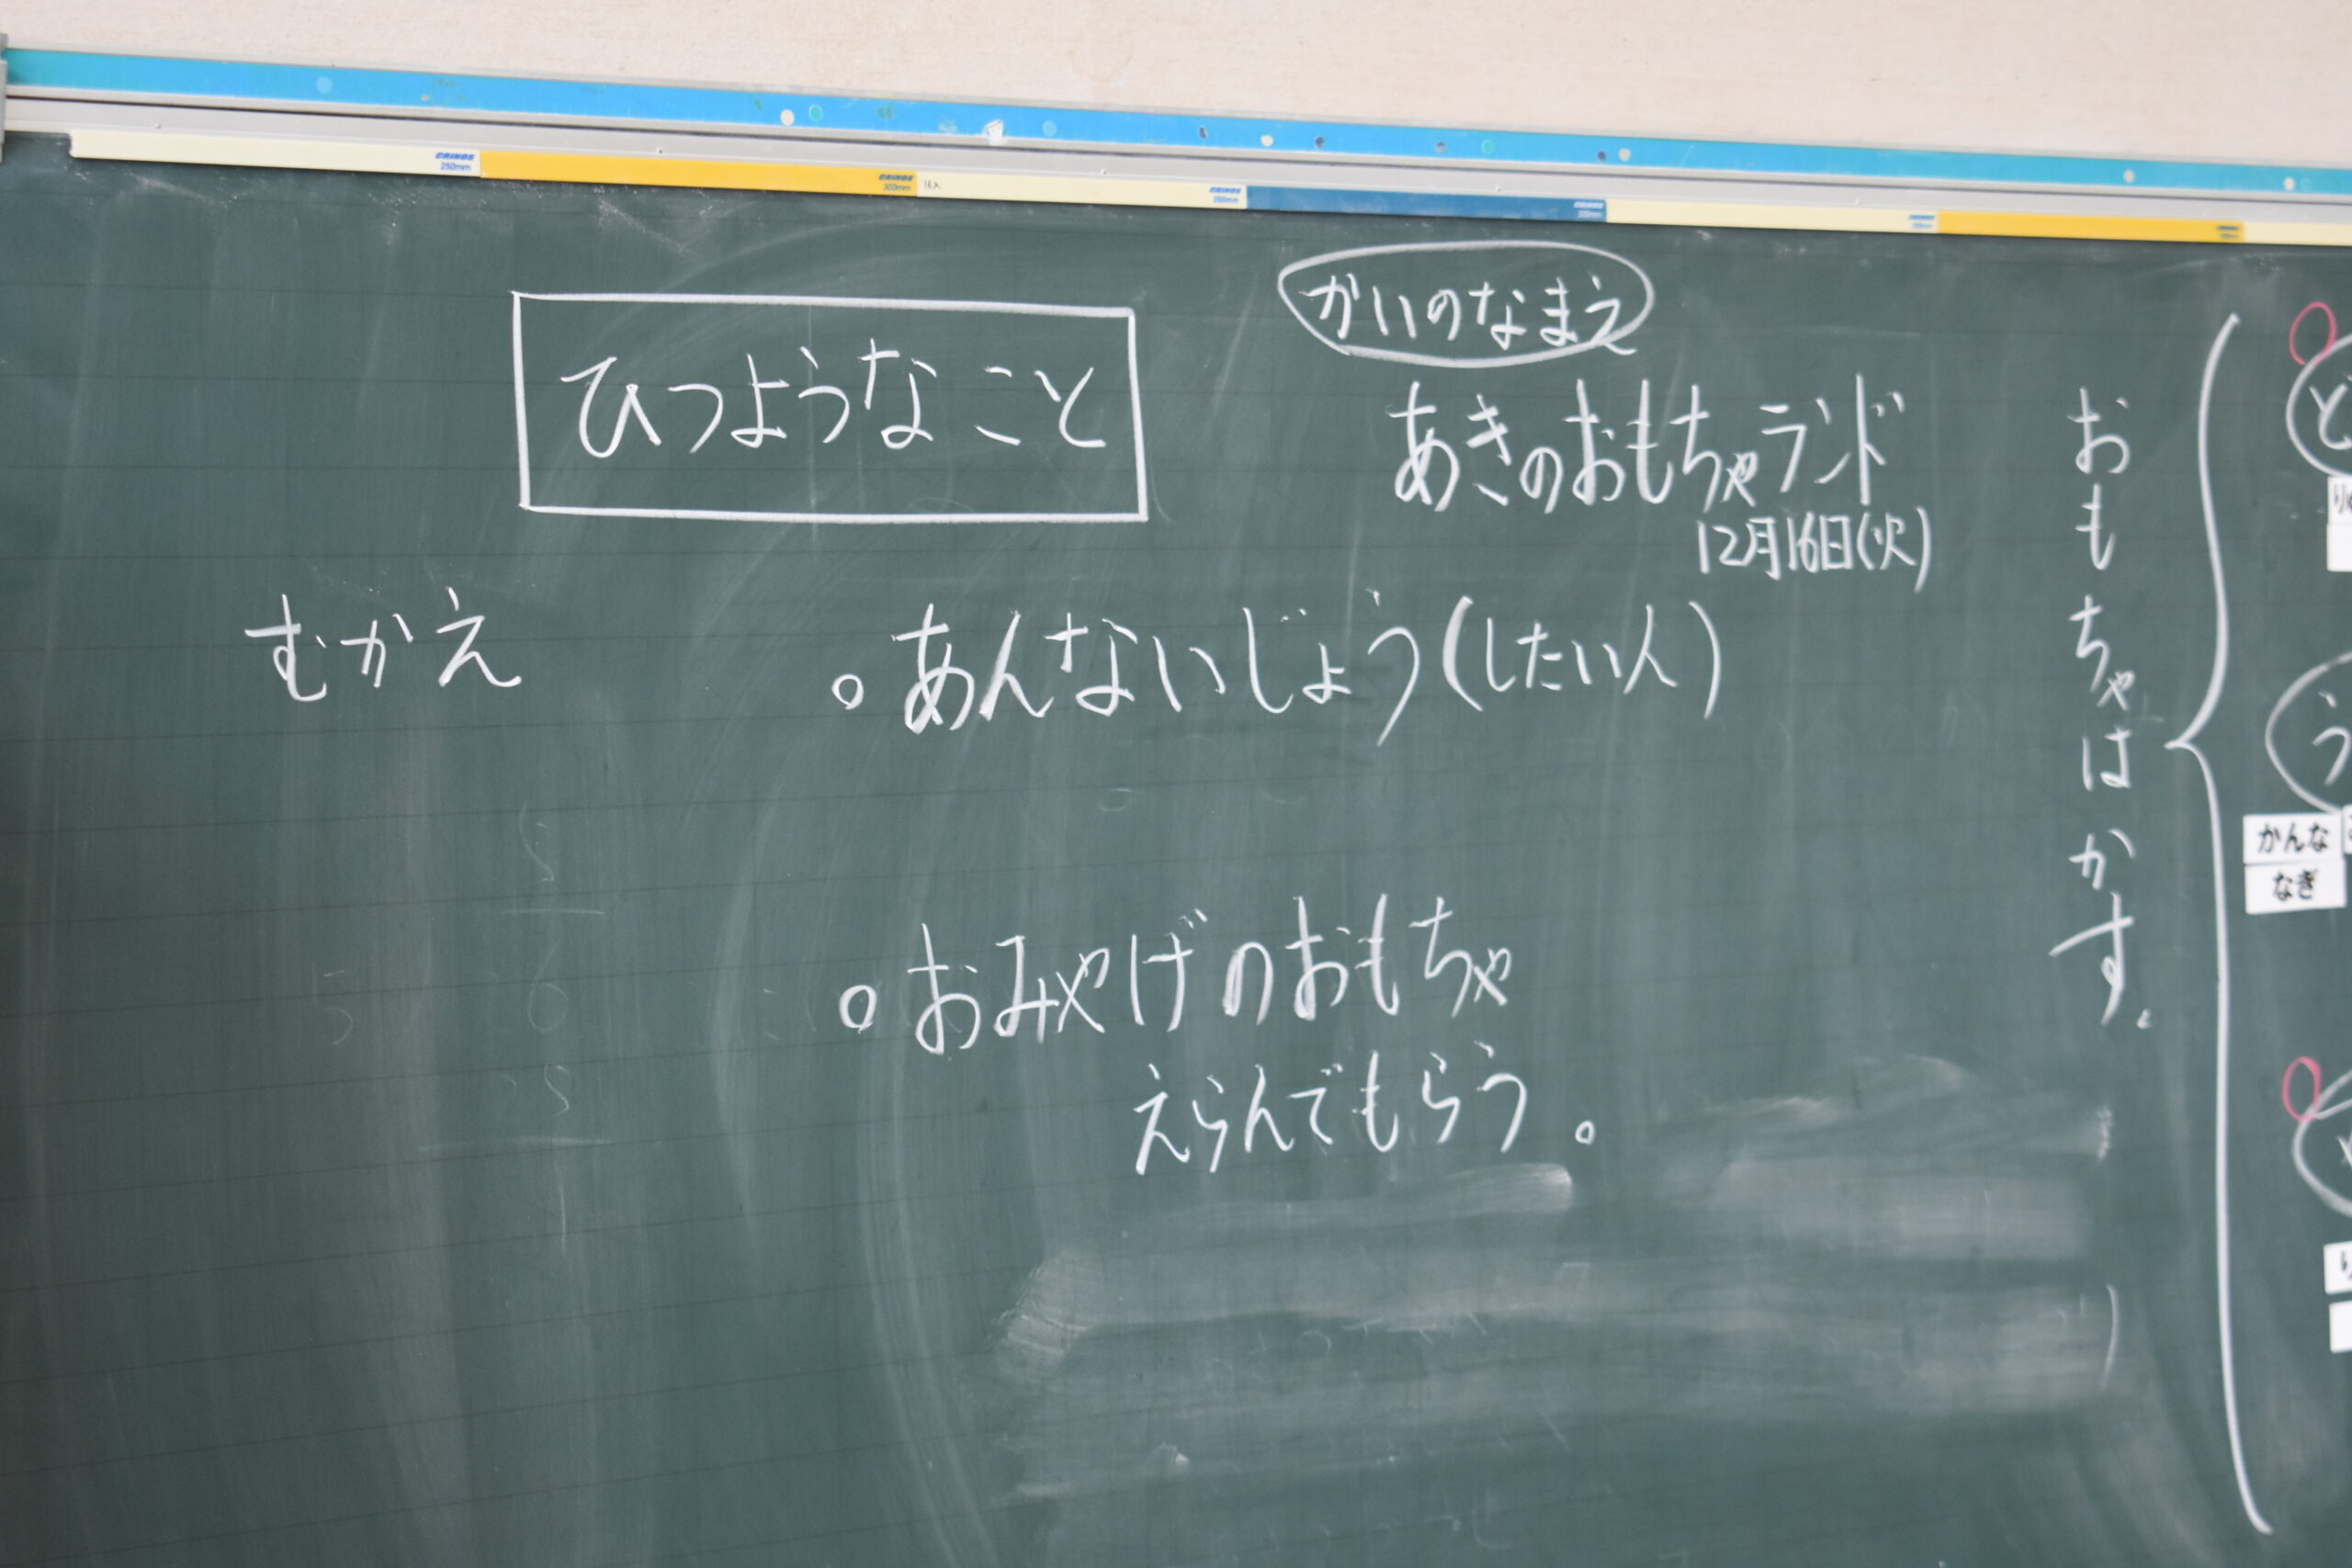 ひつようなこと
かいのなまえ
あきのおもちゃランド
12月16日(火)
むかえ
○あんないじょう(したい人)
○おみやげのおもちゃ
えらんでもらう。
おもちゃはかす。
かんな
なぎ
CRINOS
250mm
CRINOS
300mm
CRINOS
250mm